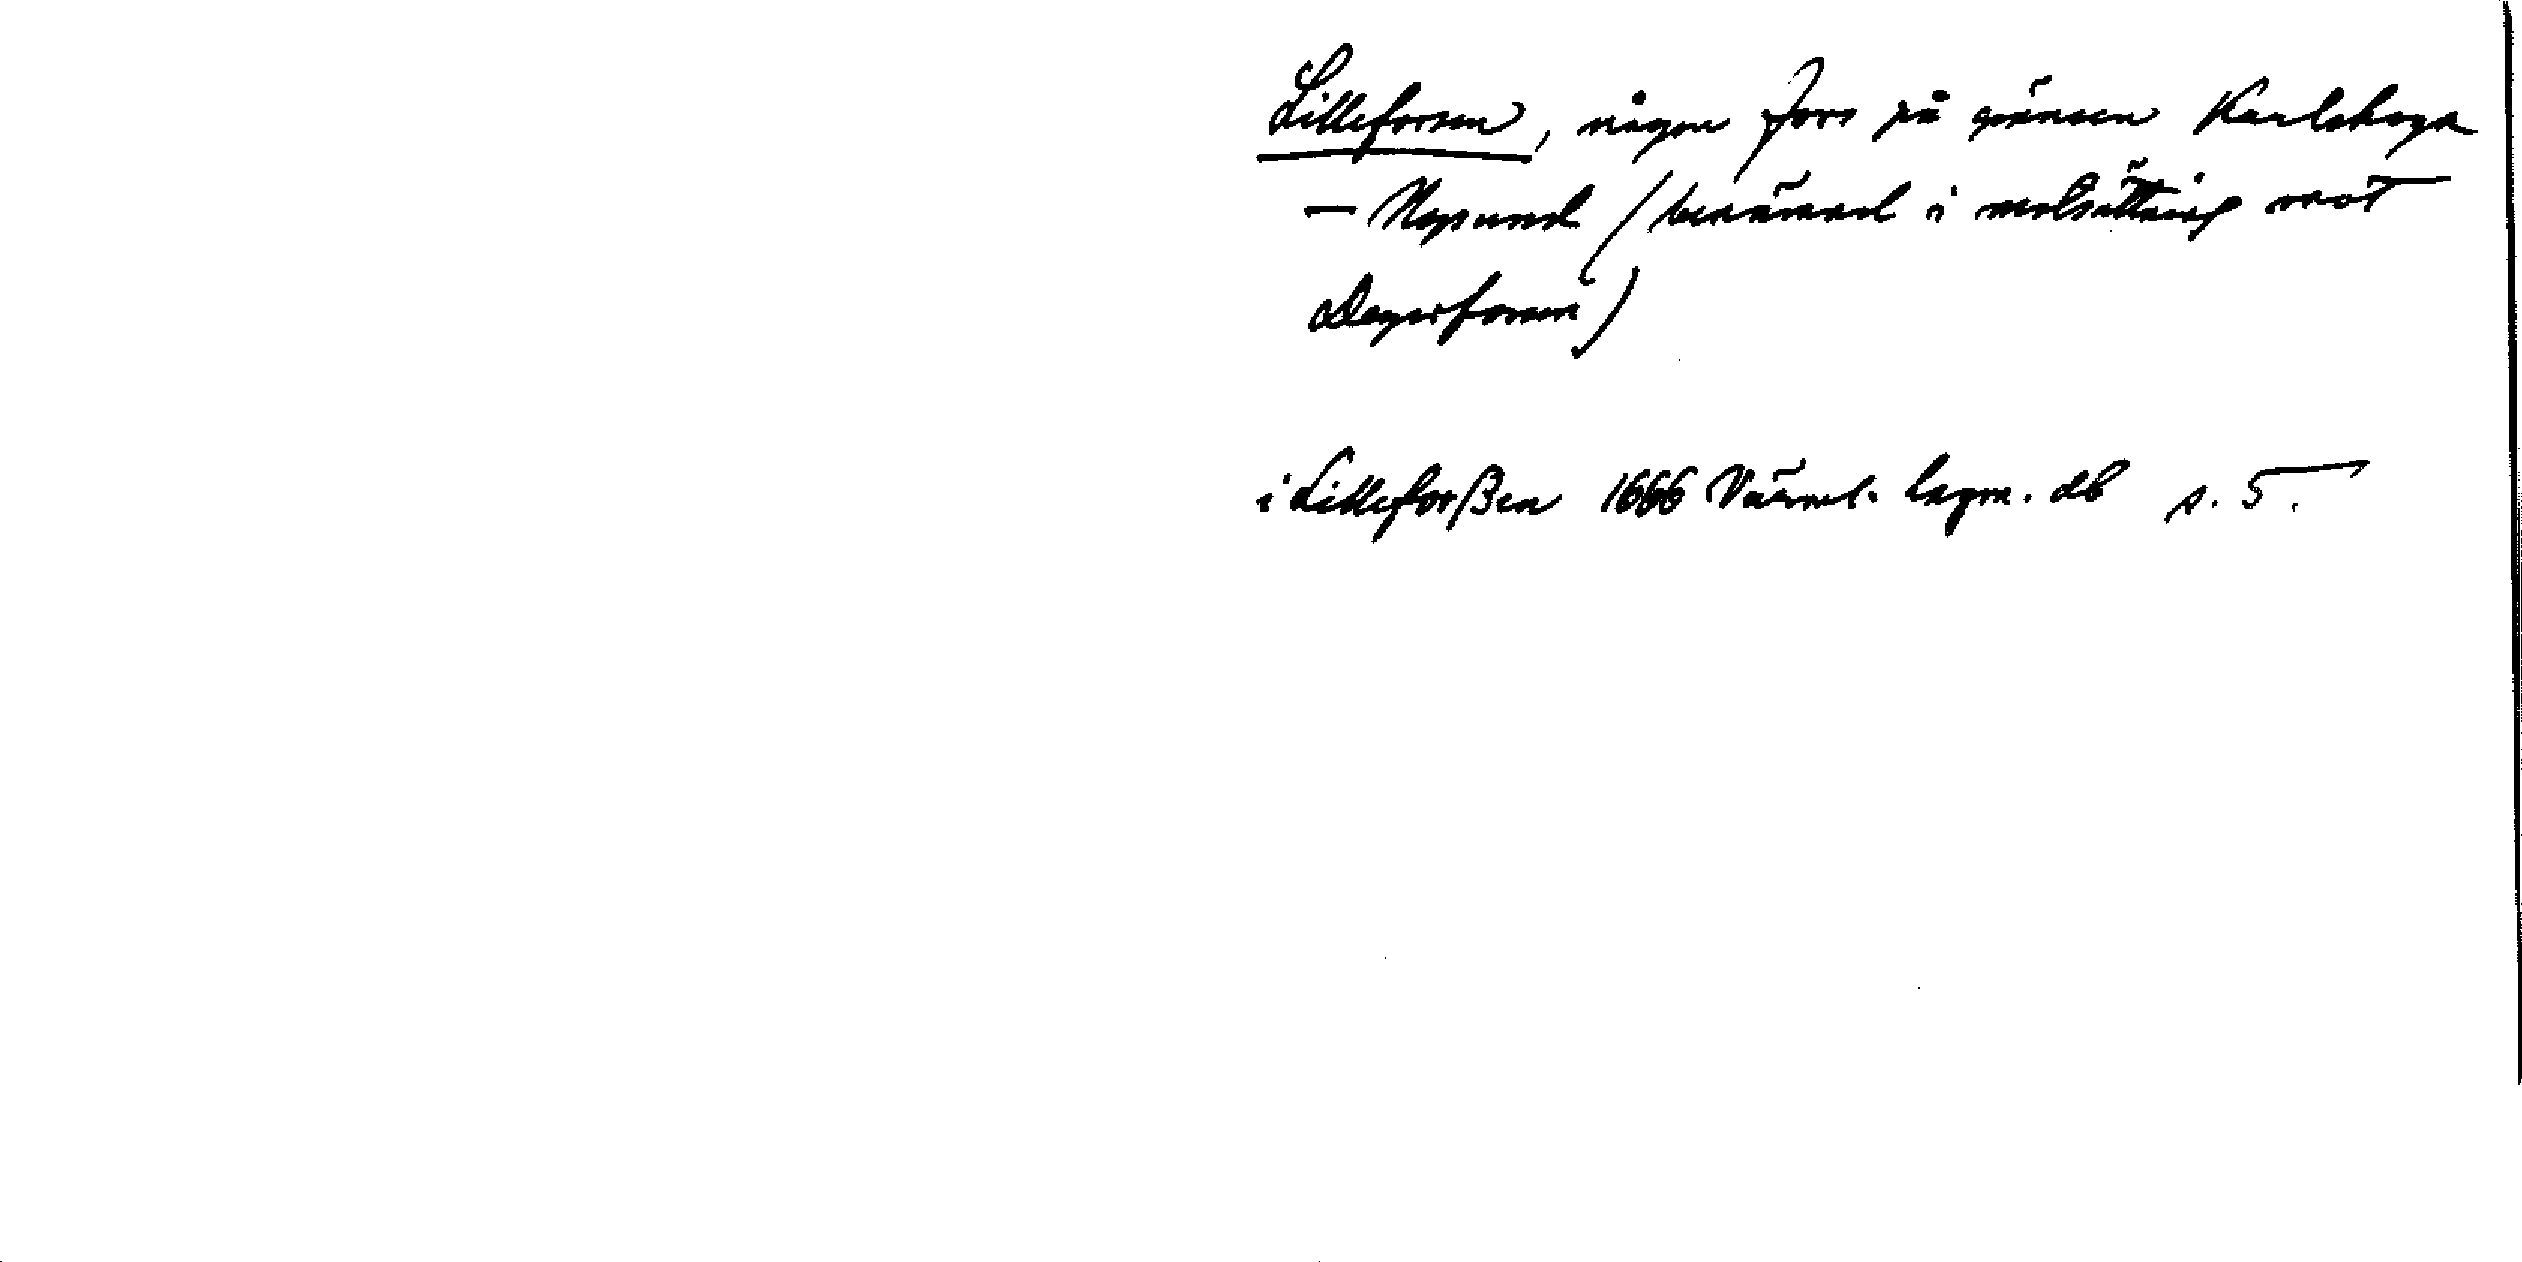 Lilleforsen, någon fors på gränsen Karlskoga
– Nysund (benämnd i motsättning mot
Degerforsen)
i Lilleforßen 1666 Värml. lagm. db s. 5.